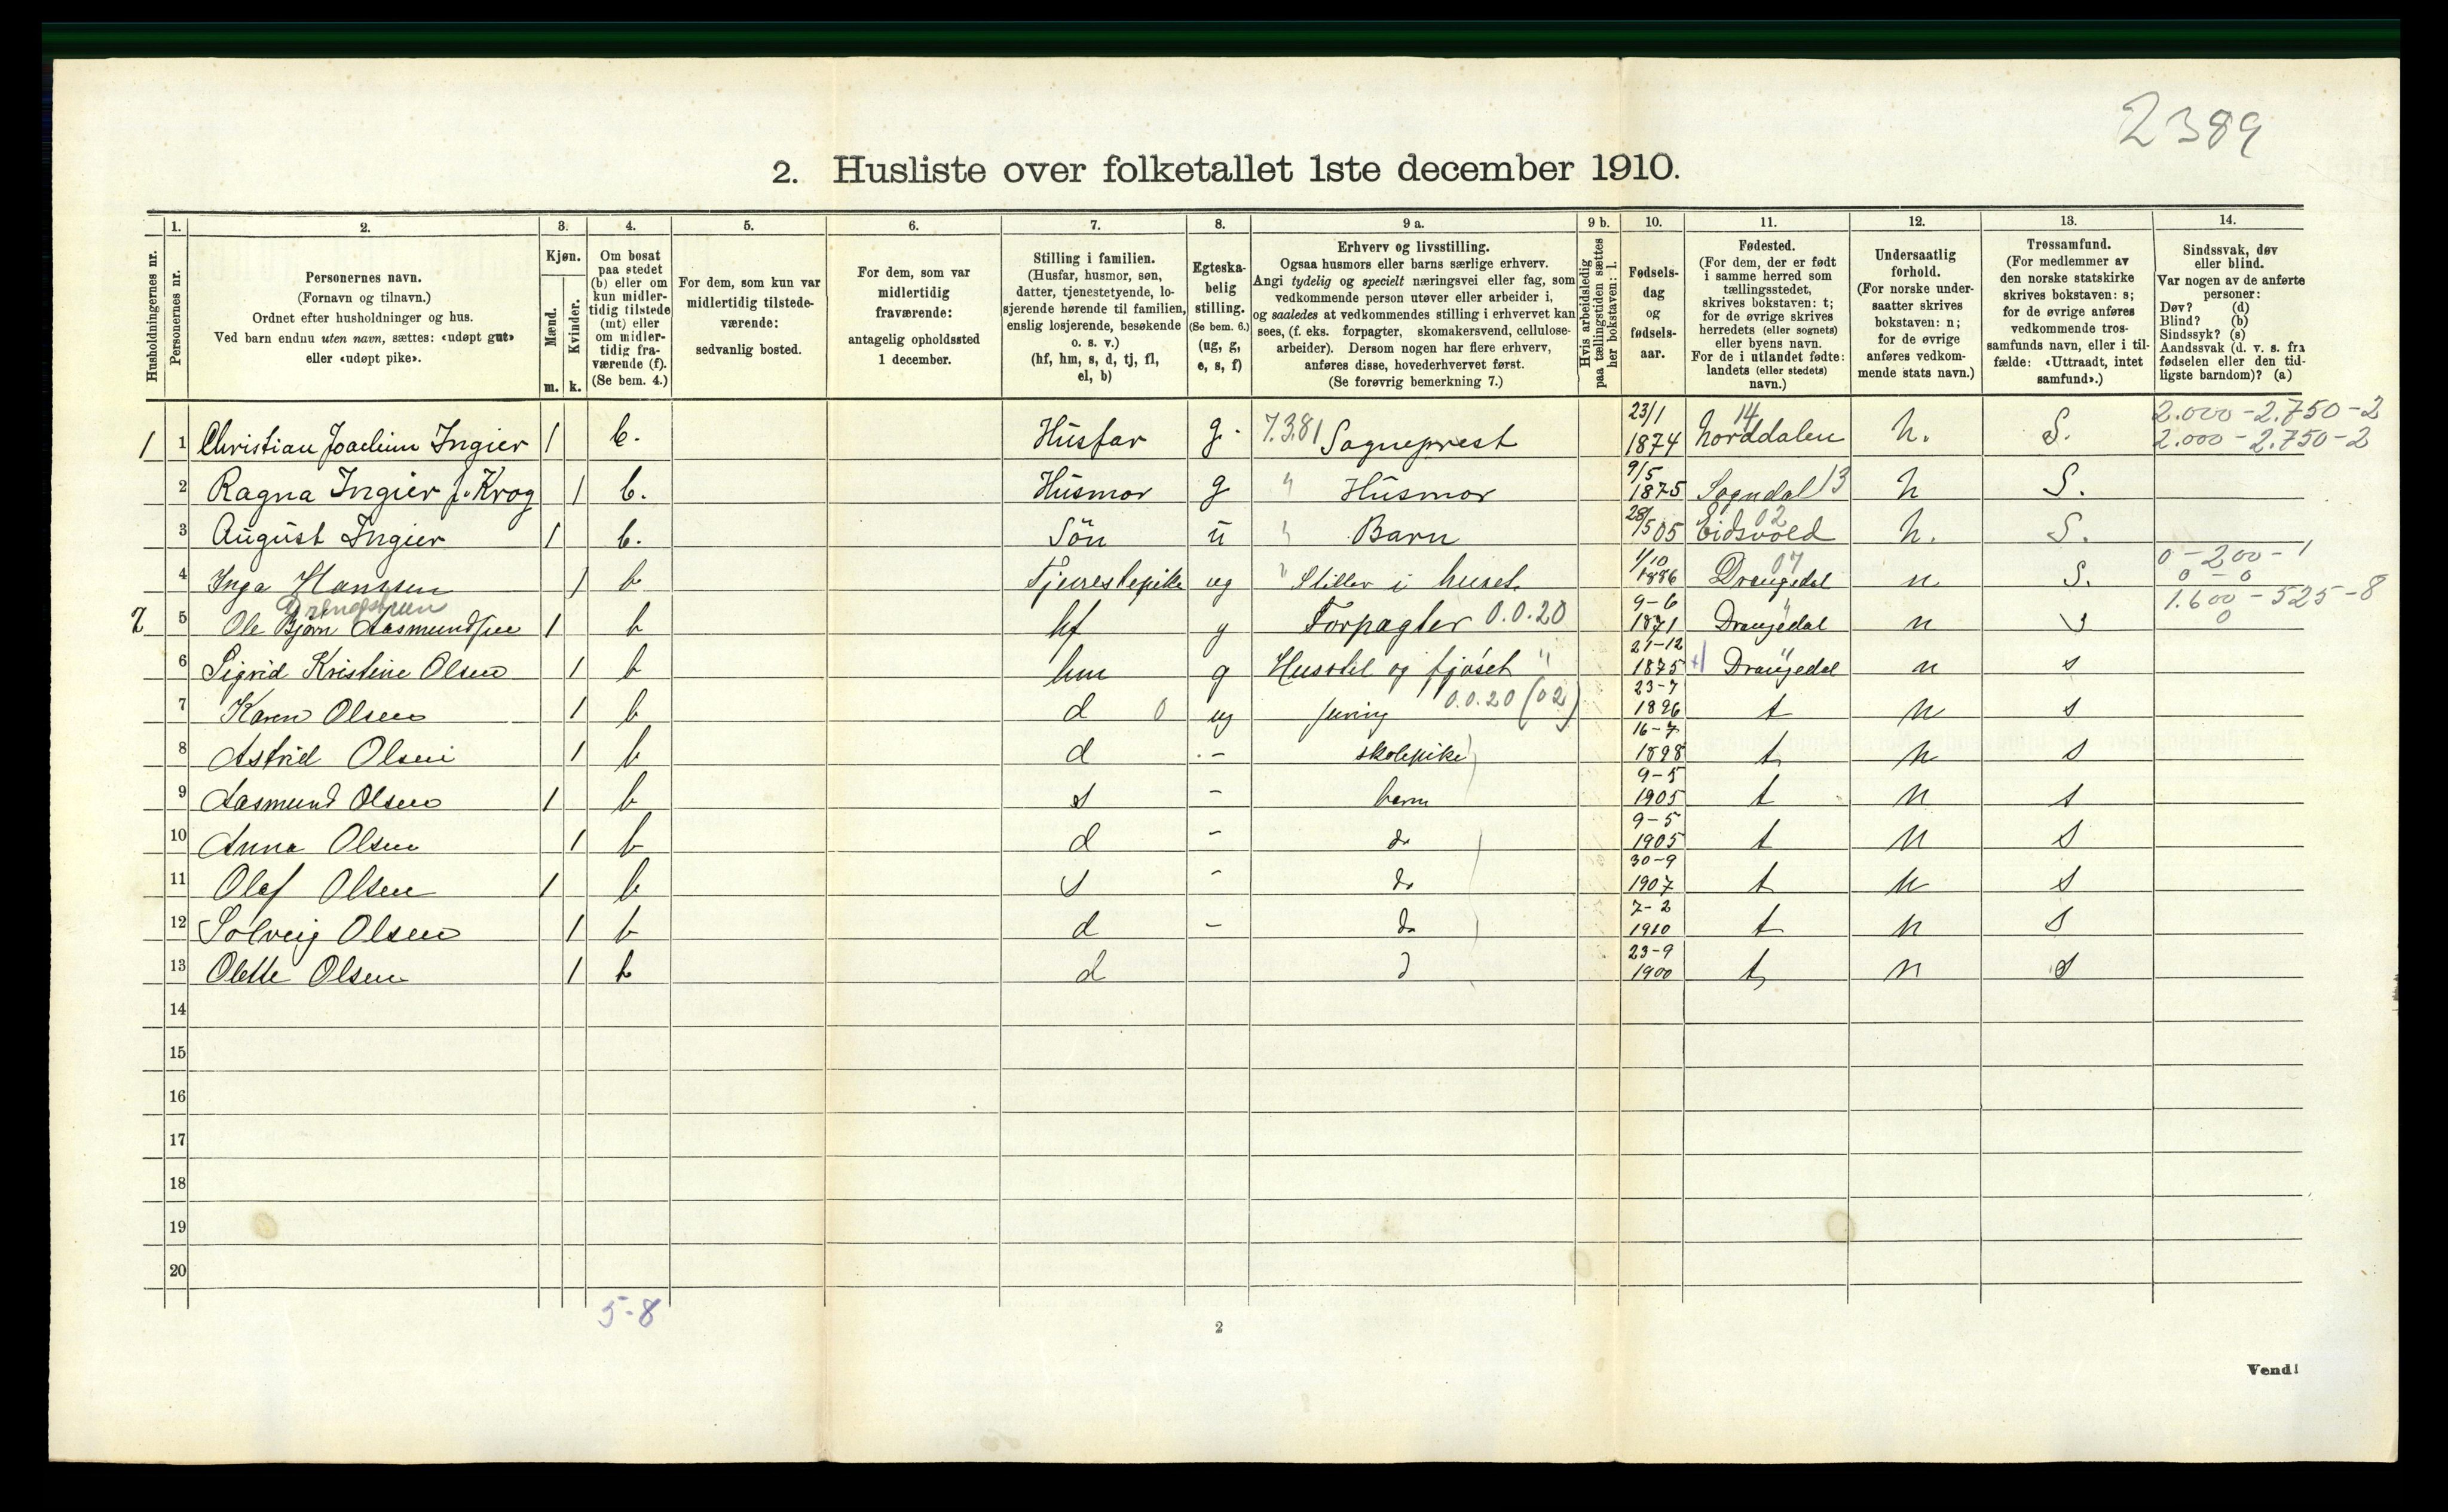 2389
2. Husliste over folketallet 1ste december 1910.
Husholdningernes nr.
1. Personernes nr.
2. Personernes navn. (Fornavn og tilnavn.) Ordnet efter husholdninger og hus. Ved barn endnu uten navn, sættes: «udøpt gut» eller «udøpt pike».
3. Kjøn. Mænd. m. Kvinder. k.
4. Om bosat paa stedet (b) eller om kun midlertidig tilstede (mt) eller om midlertidig fraværende (f). (Se bem. 4.)
5. For dem, som kun var midlertidig tilstedeværende: sedvanlig bosted.
6. For dem, som var midlertidig fraværende: antagelig opholdssted 1 december.
7. Stilling i familien. (Husfar, husmor, søn, datter, tjenestetyende, losjerende hørende til familien, enslig losjerende, besøkende o. s. v.) (hf, hm, s, d, tj, fl, el, b)
8. Egteskabelig stilling. (Se bem. 6.) (ug, g, e, s, f)
9 a. Erhverv og livsstilling. Ogsaa husmors eller barns særlige erhverv. Angi tydelig og specielt næringsvei eller fag, som vedkommende person utøver eller arbeider i, og saaledes at vedkommendes stilling i erhvervet kan sees, (f. eks. forpagter, skomakersvend, cellulosearbeider). Dersom nogen har flere erhverv, anføres disse, hovederhvervet først. (Se forøvrig bemerkning 7.)
9 b. Hvis arbeidsledig paa tællingstiden sættes her bokstaven: l.
10. Fødselsdag og fødselsaar.
11. Fødested. (For dem, der er født i samme herred som tællingsstedet, skrives bokstaven: t; for de øvrige skrives herredets (eller sognets) eller byens navn. For de i utlandet fødte: landets (eller stedets) navn.)
12. Undersaatlig forhold. (For norske undersaatter skrives bokstaven: n; for de øvrige anføres vedkommende stats navn.)
13. Trossamfund. (For medlemmer av den norske statskirke skrives bokstaven: s; for de øvrige anføres vedkommende trossamfunds navn, eller i tilfælde: «Uttraadt, intet samfund».)
14. Sindssvak, døv eller blind. Var nogen av de anførte personer: Døv? (d) Blind? (b) Sindssyk? (s) Aandssvak (d. v. s. fra fødselen eller den tidligste barndom)? (a)
1 1 Christian Joachim Ingier 1 b. Husfar g. 7.3.81 Sogneprest 23/1 1874 Norddalen 14 n. S. 2.000 - 2.750 - 2 2.000 - 2.750 - 2
2 Ragna Ingier f. Krog 1 b. Husmor g " Husmor 9/5 1875 Sogndal 13 n S.
3 August Ingier 1 b. Sön u " Barn 28/5 05 Eidsvold 02 n. S.
4 Inga Hanssen 1 b Tjenestepike ug " Steller i huset. 1/10 1886 Drangedal 07 n S. 0 - 200 - 1 0 - 0
2 5 Ole Bjørn Aasmundsen 1 b hf g Forpagter 0.0.20 9-6 1871 Drangedal " n s 1.600 - 525 - 8 0
6 Sigrid Kristine Olsen 1 b hm g Husstel og fjøset " 21-12 1875 Drangedal " n s
7 Karen Olsen 1 b d 0 ug 0.0.20 (02) 23-7 1896 t n s
8 Astrid Olsen 1 b d - skolepike 16-7 1898 t n s
9 Aasmund Olsen 1 b s - barn 9-5 1905 t n s
10 Anna Olsen 1 b d - do 9-5 1905 t n s
11 Olaf Olsen 1 b s - do 30-9 1907 t n s
12 Solveig Olsen 1 b d - do 7-2 1910 t n s
13 Olette Olsen 1 b d d 23-9 1900 t n s
14
15
16
17
18
19
20
5-8
2
Vend!